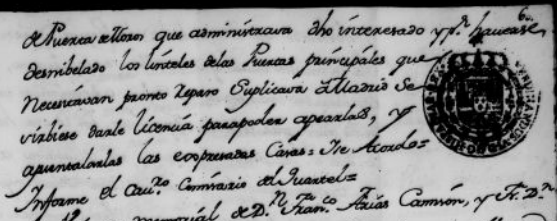 de Puerta de Toros que administrava dho interesado y pr. haverse
desnibelado los linteles delas Puertas principáles que
Necesitavan pronto Reparo Suplicava á Madrid Se
virbiese darle licencia parapoder apearlas, y
apuentalarlas las expresadas Casas = Se Acordo =
Informe el Cavro. Comisario del Quartel =
memoriál de Dn. Franco. Arias Camisón, y Fr. Dn.